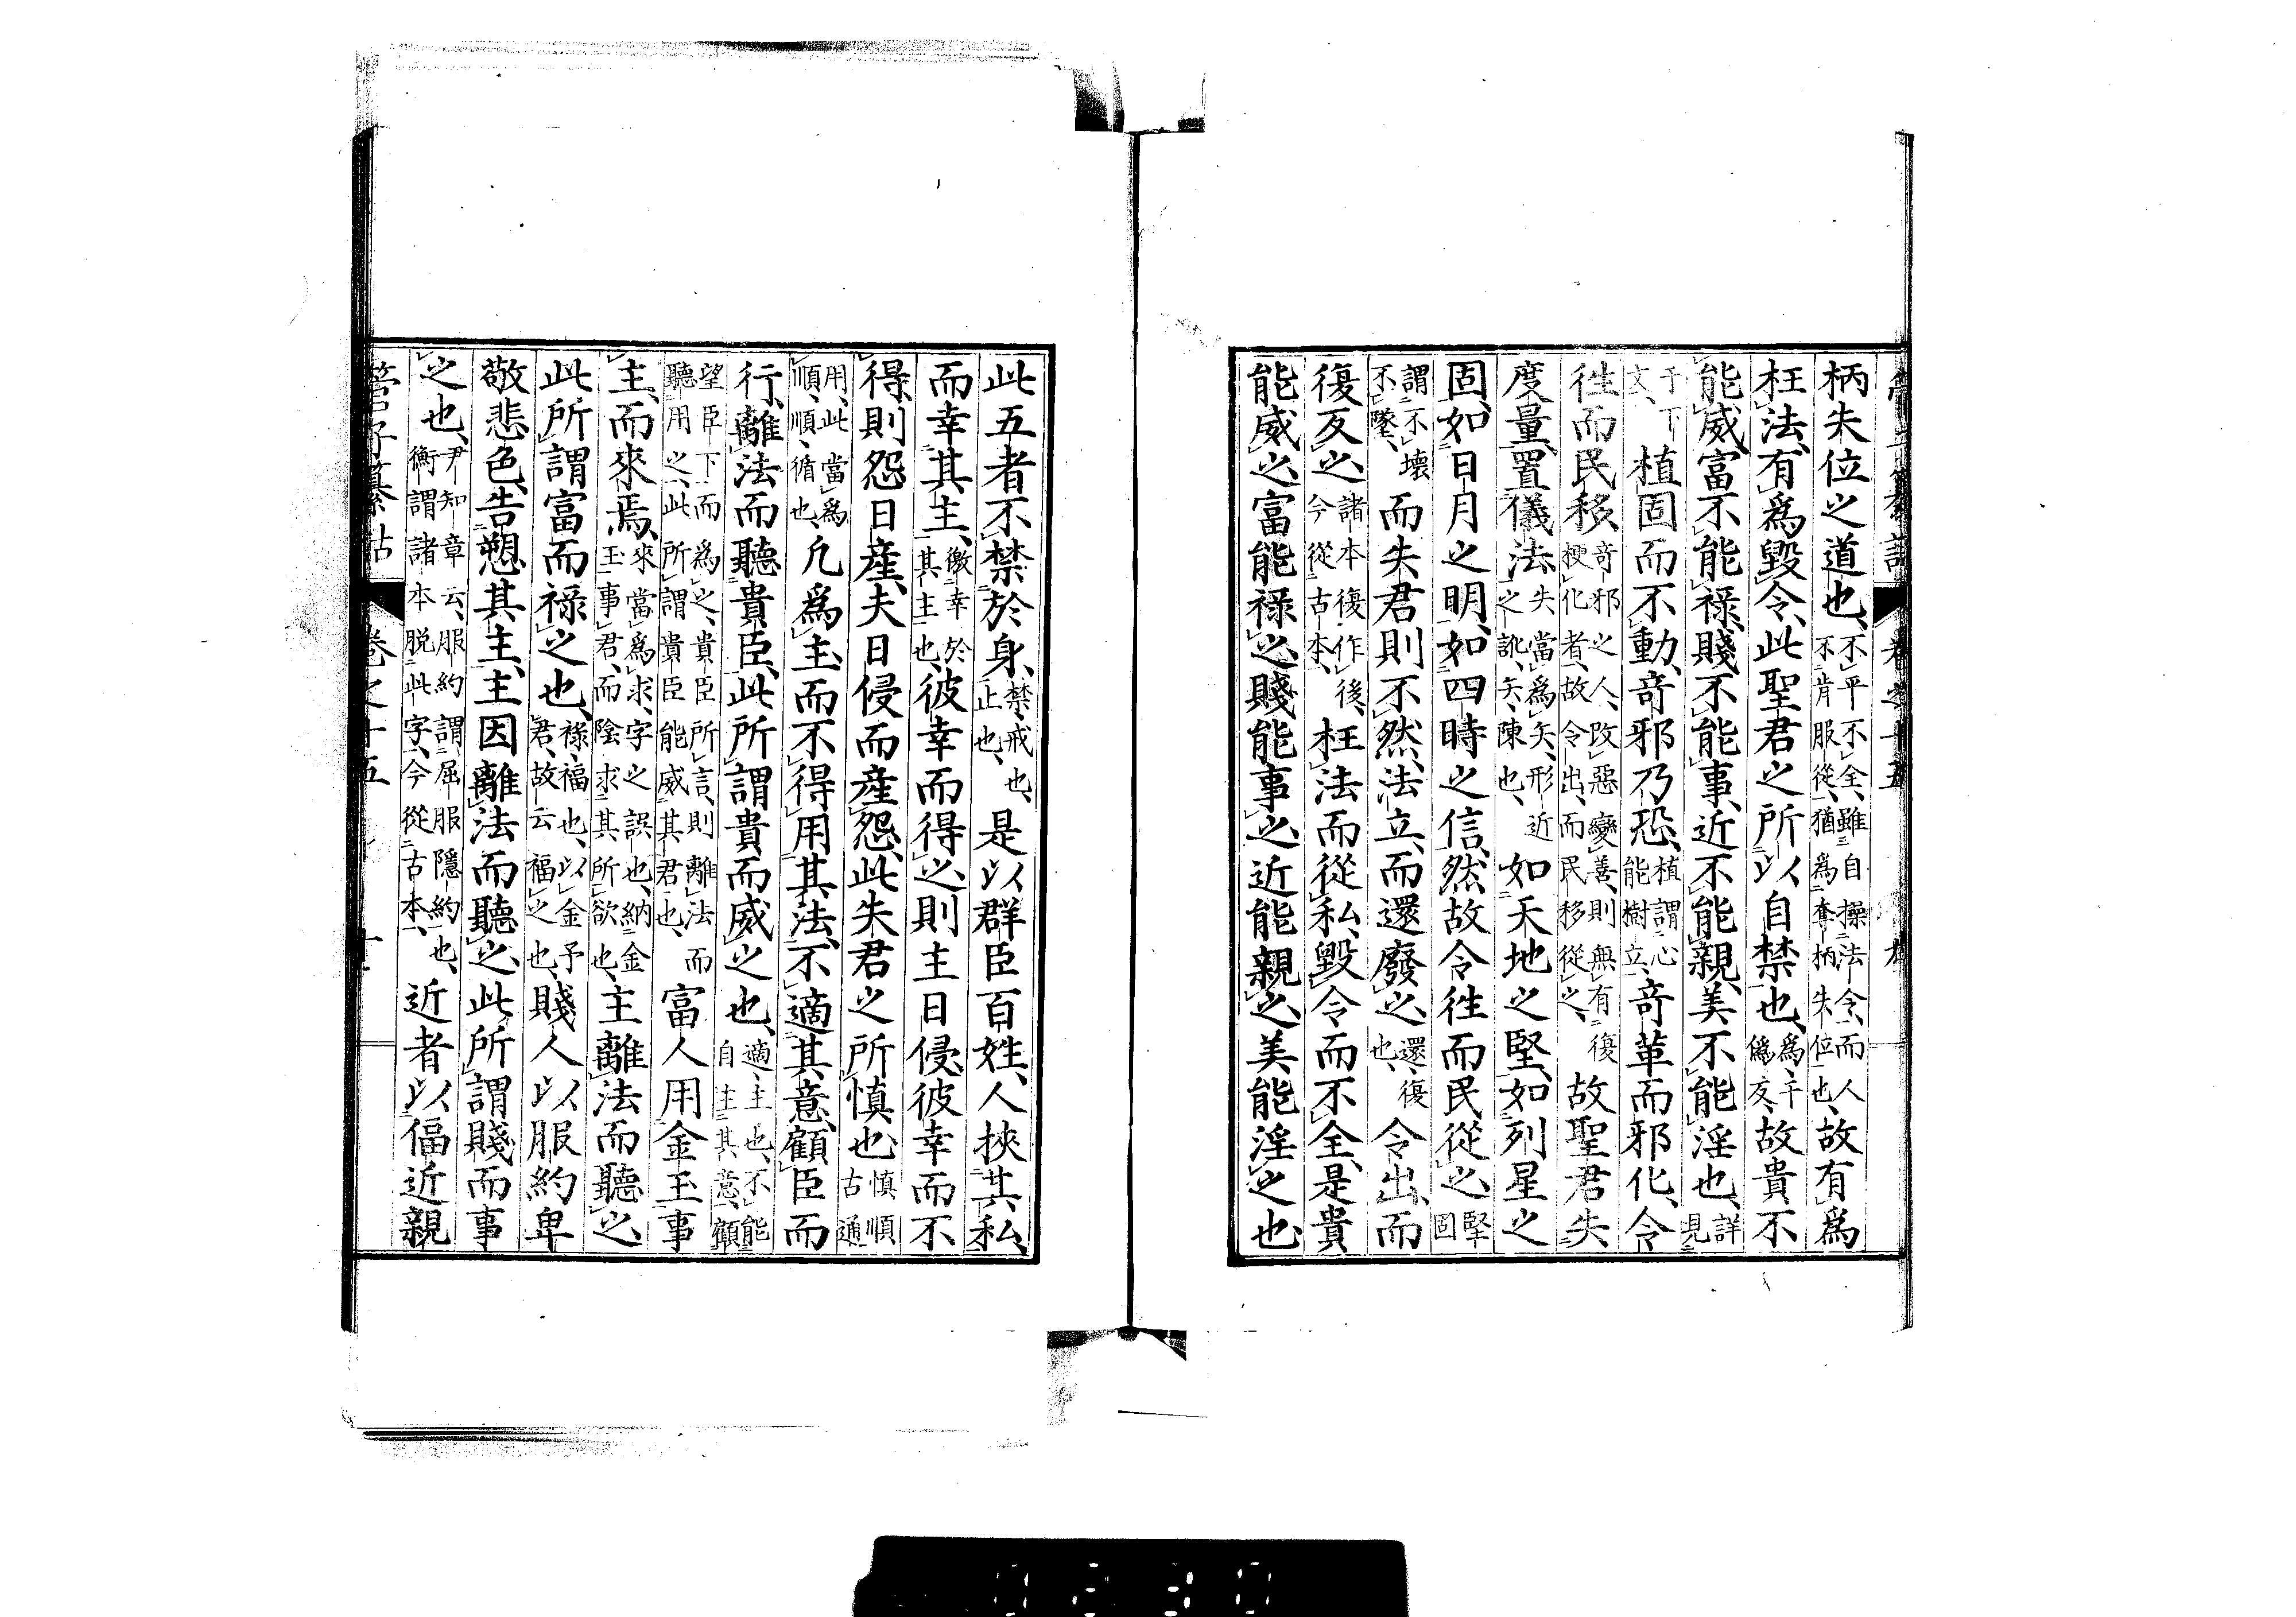 柄失位之道也、不平不全、雖自操法令、而人不肯服從、猶爲奪柄失位也、故有爲
枉法、有爲毀令、此聖君之所以自禁也、爲、于僞反、故貴不
能威、富不能祿、賤不能事、近不能親、美不能淫也、詳見
于下文、植固而不動、奇邪乃恐、植謂心能樹立、奇革而邪化、令
徃而民移、奇邪之人、改惡變善、則無有復梗化者、故令出、而民移從之、故聖君失
度量、置儀法、失當爲矢、形近之訛、矢、陳也、如天地之堅、如列星之
固、如日月之明、如四時之信、然故令徃而民從之、堅固
謂不壞不墜、而失君則不然、法立而還廢之、還、復也、令出、而
復反之、諸本復作後、今從古本、枉法而從私、毀令而不全、是貴
能威之、富能祿之、賤能事之、近能親之、美能淫之也、
此五者不禁於身、禁、戒也、止也、是以群臣百姓、人挾其私、
而幸其主、徼幸於其主也、彼幸而得之、則主日侵、彼幸而不
得、則怨日産、夫日侵而産怨、此失君之所愼也愼順古通
用、此當爲順、順、循也、凡爲主而不得用其法、不適其意、顧臣而
行、離法而聽貴臣、此所謂貴而威之也、適、主也、不能自主其意、顧
望臣下而爲之、貴臣所言、則離法而聽用之、此所謂貴臣能威其君也、富人用金玉事
主、而來焉、來當爲求、字之誤也、納金玉事君、而陰求其所欲也、主離法而聽之、
此所謂富而祿之也、祿、福也、以金予君、故云福之也、賤人以服約卑
敬悲色、告愬其主、主因離法而聽之、此所謂賤而事
之也、尹知章云、服約謂屈服隱約也、衡謂諸本脱此字、今從古本、近者以偪近親
管子纂詁 卷之十五